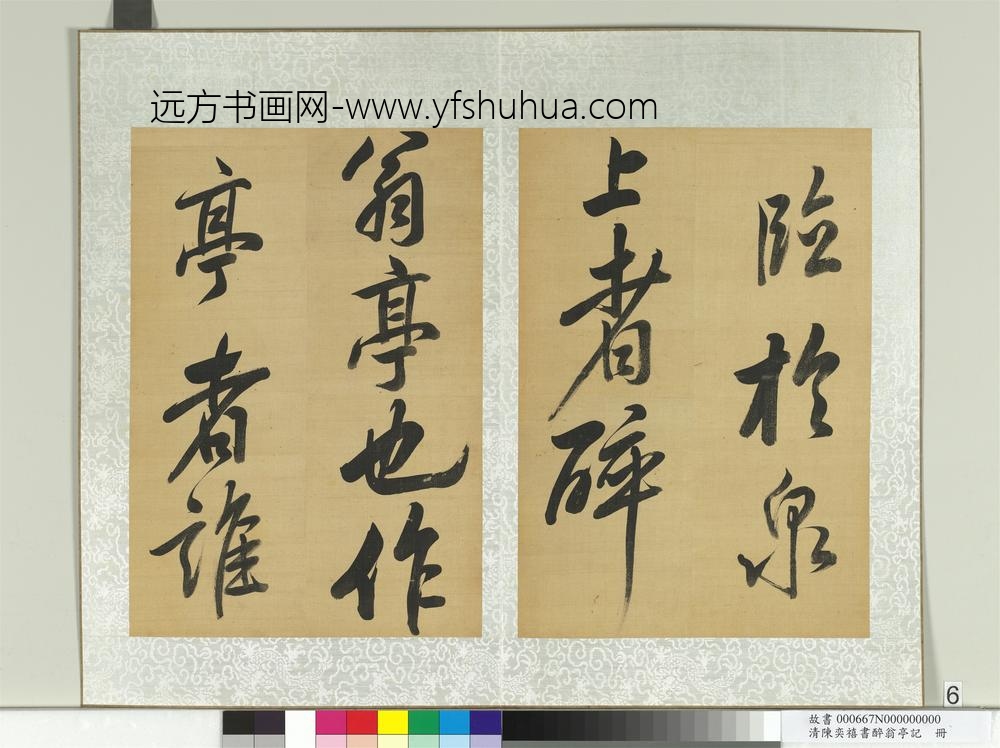 远方书画网-www.yfshuhua.com
臨於泉
上者醉
翁亭也作
亭者誰
6
故書 000667N000000000
清陳奕禧書醉翁亭記 冊